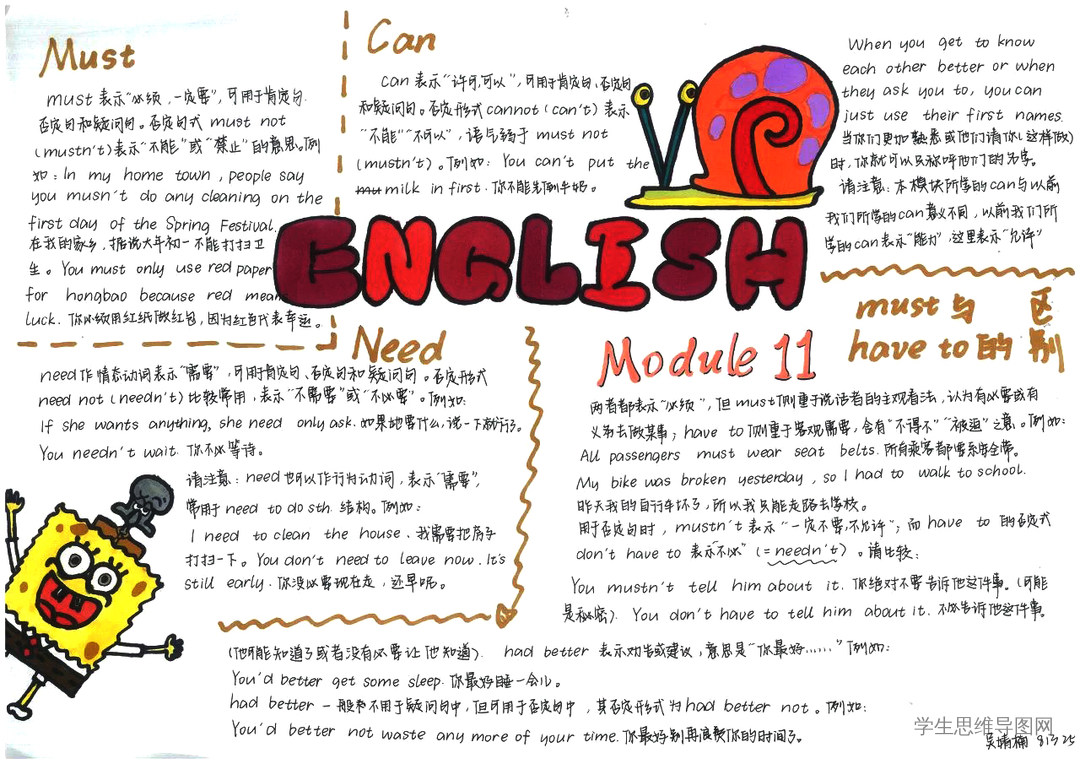 Must
must 表示“必须，一定要”，可用于肯定句.
否定句和疑问句。否定句式 must not
(mustn't)表示“不能”或“禁止”的意思。例
如：In my home town, people say
you musn't do any cleaning on the
first day of the Spring Festival.
在我的家乡，据说大年初一不能打扫卫
生。You must only use red paper
for hongbao because red mean
luck. 你必须用红纸做红包，因为红色代表幸运。
Can
can 表示“许可，可以”，可用于肯定句、否定句
和疑问句。否定形式cannot (can't) 表示
“不能”“不可以”，语气弱于 must not
(mustn't)。例如：You can't put the
milk in first. 你不能先倒牛奶。
When you get to know
each other better or when
they ask you to, you can
just use their first names.
当你们更加熟悉或他们请你(这样做)
时，你就可以只称呼他们的名字。
请注意：本模块所学的can与以前
我们所学的can意义不同，以前我们所
学的can表示“能力”，这里表示“允许”
ENGLISH
Module 11
Need
need作情态动词表示“需要”，可用于肯定句、否定句和疑问句。否定形式
need not (needn't)比较常用，表示“不需要”或“不必要”。例如：
If she wants anything, she need only ask. 如果她要什么，说一下就行了。
You needn't wait. 你不必等待。
请注意：need也可以作行为动词，表示“需要”，
常用于 need to do sth. 结构。例如：
I need to clean the house. 我需要把房子
打扫一下。You don't need to leave now. It's
still early. 你没必要现在走，还早呢。
must 与 have to 的 区别
两者都表示“必须”，但must侧重于说话者的主观看法，认为有必要或有
义务去做某事；have to 侧重于客观需要，含有“不得不”“被迫”之意。例如：
All passengers must wear seat belts. 所有乘客都要系安全带。
My bike was broken yesterday, so I had to walk to school.
昨天我的自行车坏了，所以我只能走路去学校。
用于否定句时，mustn't 表示“一定不要，不允许”；而 have to 的否定式
don't have to 表示“不必”(=needn't)。请比较：
You mustn't tell him about it. 你绝对不要告诉他这件事。(可能
是秘密). You don't have to tell him about it. 不必告诉他这件事。
(他可能知道了或者没有必要让他知道). had better 表示劝告或建议，意思是“你最好……”例如：
You'd better get some sleep. 你最好睡一会儿。
had better 一般都不用于疑问句中，但可用于否定句中，其否定形式为had better not。例如：
You'd better not waste any more of your time. 你最好别再浪费你的时间了。
学生思维导图网